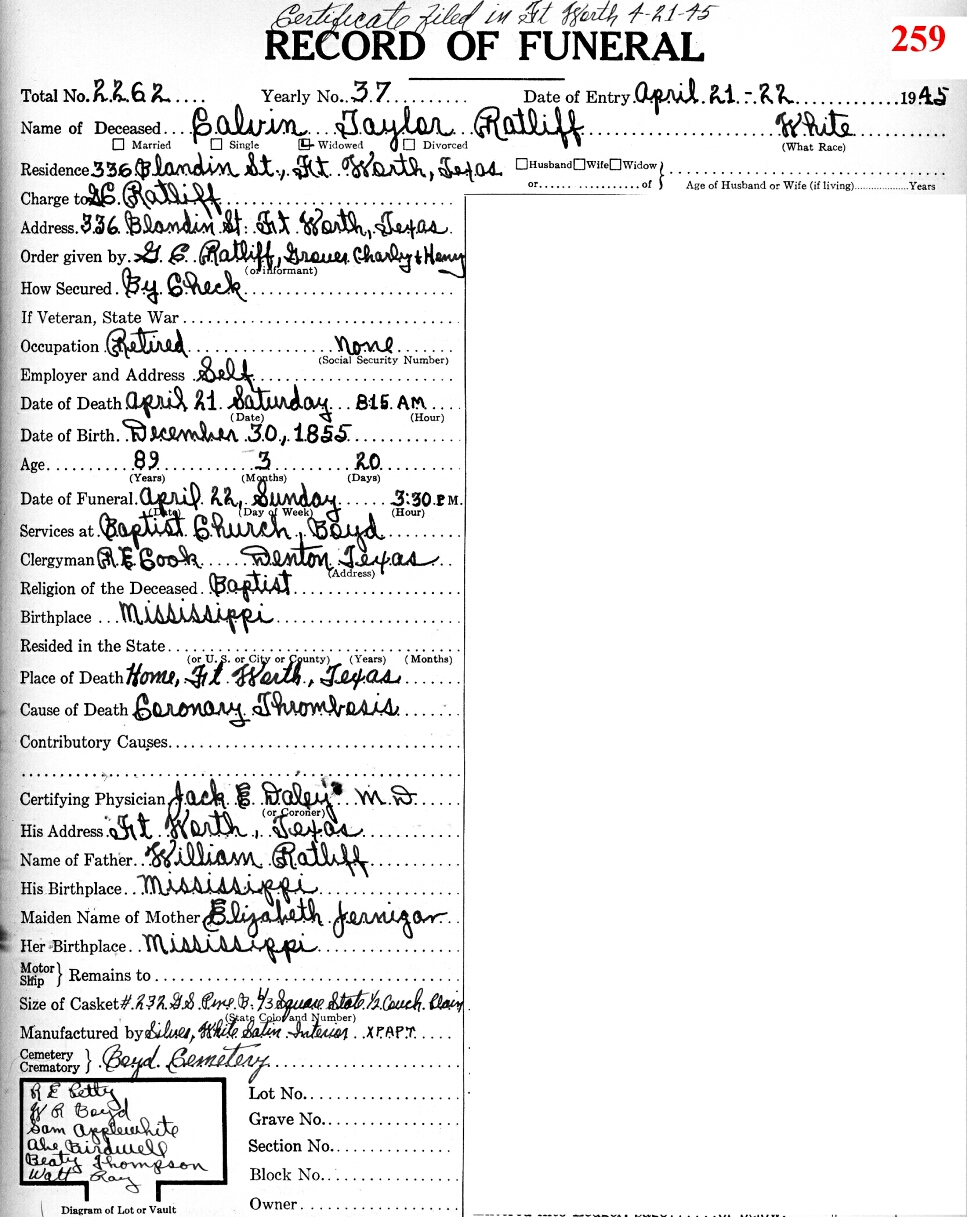 Certificate filed in Ft Worth 4-21-45
RECORD OF FUNERAL
259
Total No. 2262 Yearly No. 37 Date of Entry April 21-22 1945
Name of Deceased Calvin Taylor Ratliff White
☐ Married ☐ Single ☐ Widowed ☐ Divorced (What Race)
Residence 336 Blandin St., Ft. Worth, Texas ☐Husband☐Wife☐Widow
or of Age of Husband or Wife (if living) Years
Charge to G.C. Ratliff
Address 336 Blandin St. Ft Worth, Texas
Order given by G. C. Ratliff, Grover Charly & Henry
(or informant)
How Secured By Check
If Veteran, State War
Occupation Retired None
(Social Security Number)
Employer and Address Self
Date of Death April 21 Saturday 8:15 AM
(Date) (Hour)
Date of Birth December 30, 1855
Age 89 3 20
(Years) (Months) (Days)
Date of Funeral April 22, Sunday 3:30 P.M.
(Date) (Day of Week) (Hour)
Services at Baptist Church, Boyd
Clergyman R E Cook Denton Texas
(Address)
Religion of the Deceased Baptist
Birthplace Mississippi
Resided in the State
(or U. S. or City or County) (Years) (Months)
Place of Death Home, Ft Worth, Texas
Cause of Death Coronary Thrombosis
Contributory Causes
Certifying Physician Jack E Daley M.D.
(or Coroner)
His Address Ft Worth, Texas
Name of Father William Ratliff
His Birthplace Mississippi
Maiden Name of Mother Elizabeth Jernigar
Her Birthplace Mississippi
Motor
Ship } Remains to
Size of Casket #232 G.S. B. 4/3 Square State 1/2 Couch. Plain
(State Color and Number)
Manufactured by Silver, White Satin Interior
Cemetery
Crematory } Boyd Cemetery
R E Petty
W R Boyd
Sam Applewhite
Abe Birdwell
Beaty Thompson
Watt Ray
Lot No.
Grave No.
Section No.
Block No.
Owner
Diagram of Lot or Vault